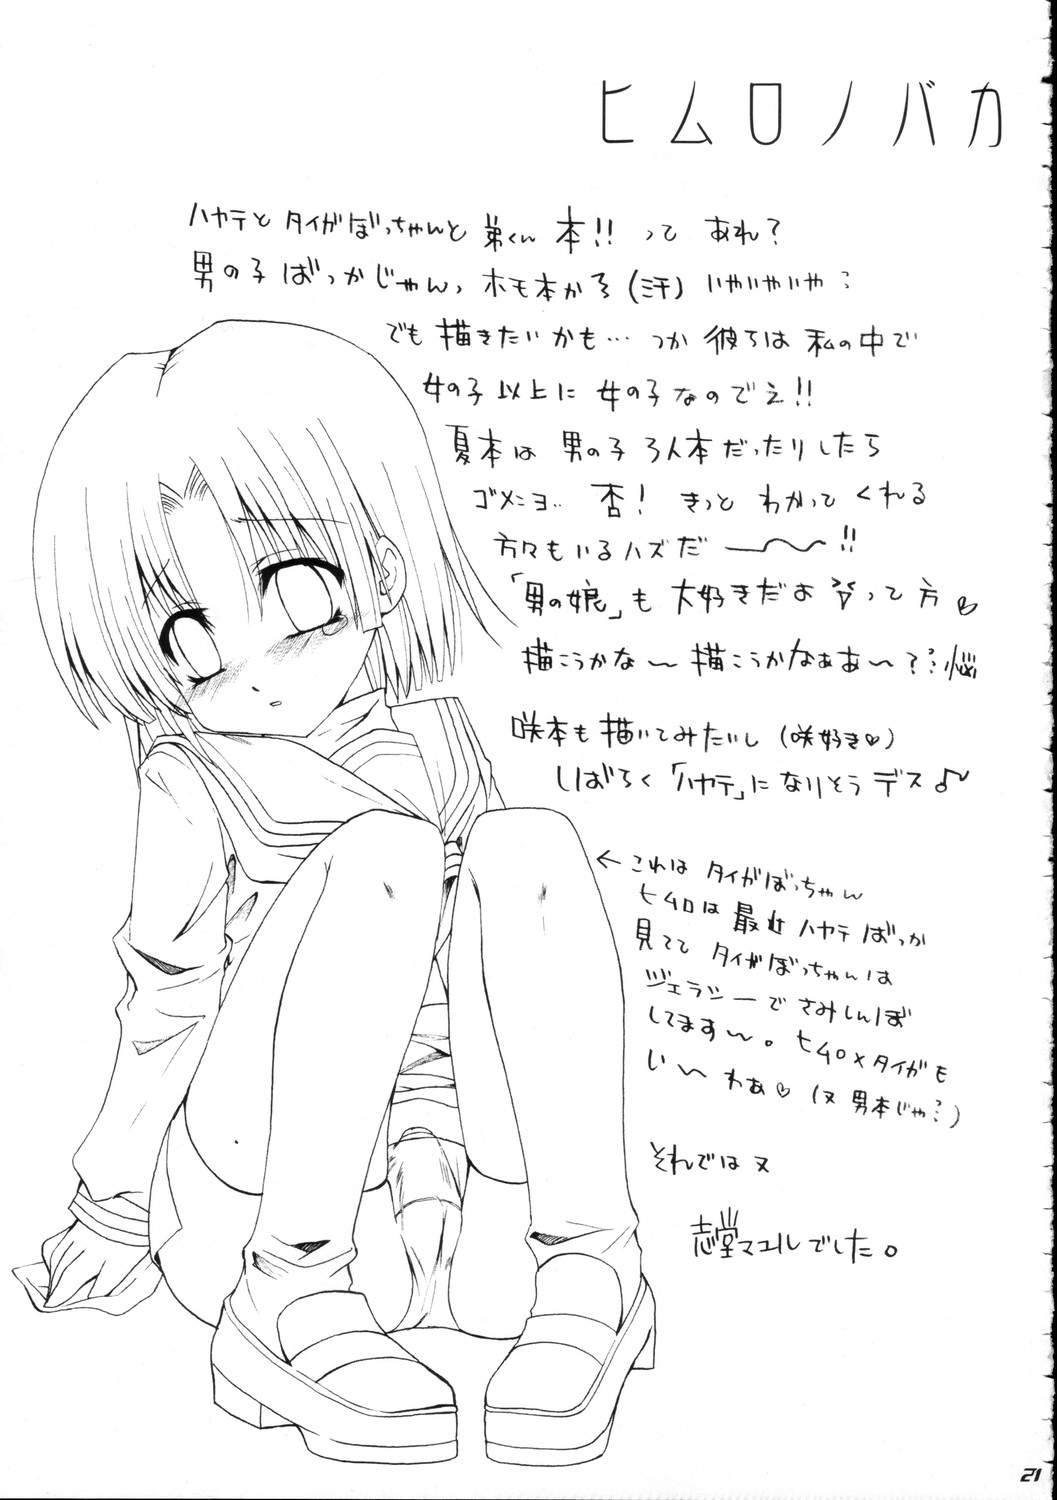 ヒムロノバカ
ハヤテと タイガぼっちゃんと 弟くん 本!! って あれ?
男の子 ばっかじゃんっ ホモ本かよ (汗) いやいやいや…
でも 描きたいかも… つか 彼らは 私の中で
女の子以上に 女の子なのでえ!!
夏本は 男の子 3人本だったりしたら
ゴメンヨ… 否! きっと わかってくれる
方々もいるハズだ ー〜!!
「男の娘」も 大好きだよ って方♡
描こうかな〜 描こうかなぁあ〜? 悩
咲本も描いてみたいし (咲好き♡)
しばらく「ハヤテ」になりそうデス♪
← これは タイガぼっちゃん
ヒムロは 最近 ハヤテばっか
見てて タイガぼっちゃんは
ジェラシーで さみしんぼ
してます〜。 ヒムロ×タイガも
い〜 わぁ♡ (ヌ 男本じゃ…)
それでは ヌ
志堂マユルでした。
21